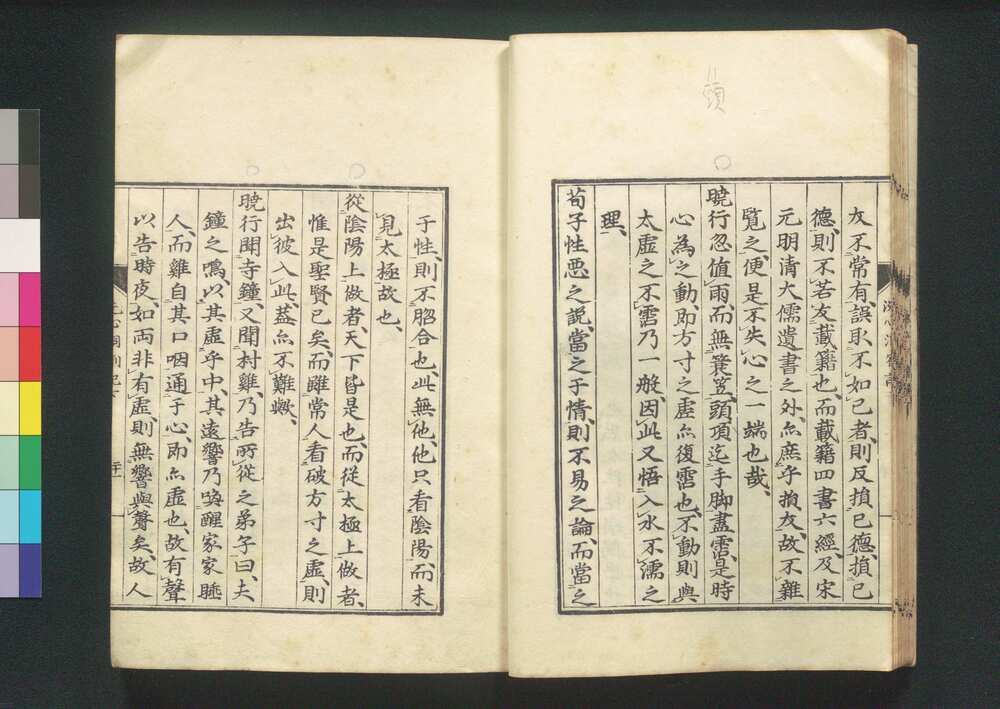 頭
友不常有、誤取不如己者、則反損己德、損己
德、則不若友載籍也、而載籍四書六經、及宋
元明清大儒遺書之外、亦庶乎損友、故不雜
覽之、便是不失心之一端也哉、
曉行忽値雨、而無簑笠、頭項迄手脚盡霑、是時
心為之動、即方寸之虛亦復霑也、不動則與
太虛之不霑乃一般、因此又悟入水不濡之
理、
荀子性惡之説、當之于情、則不易之論、而當之
于性、則不脗合也、此無他、他只看陰陽、而未
見太極故也、
從陰陽上做者、天下皆是也、而從太極上做者、
惟是聖賢已矣、而雖常人看破方寸之虛、則
出彼入此、蓋亦不難歟、
曉行聞寺鐘、又聞村雞、乃告所從之弟子曰、夫
鐘之鳴、以其虛乎中、其遠響乃喚醒家家睡
人、而雞自其口咽通于心、即亦虛也、故有聲
以告時夜、如両非有虛、則無響與聲矣、故人